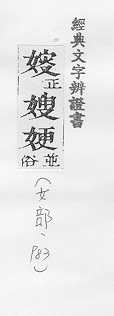 經典文字辨證書
㛮正嫂㛐並俗
(女部、P83)